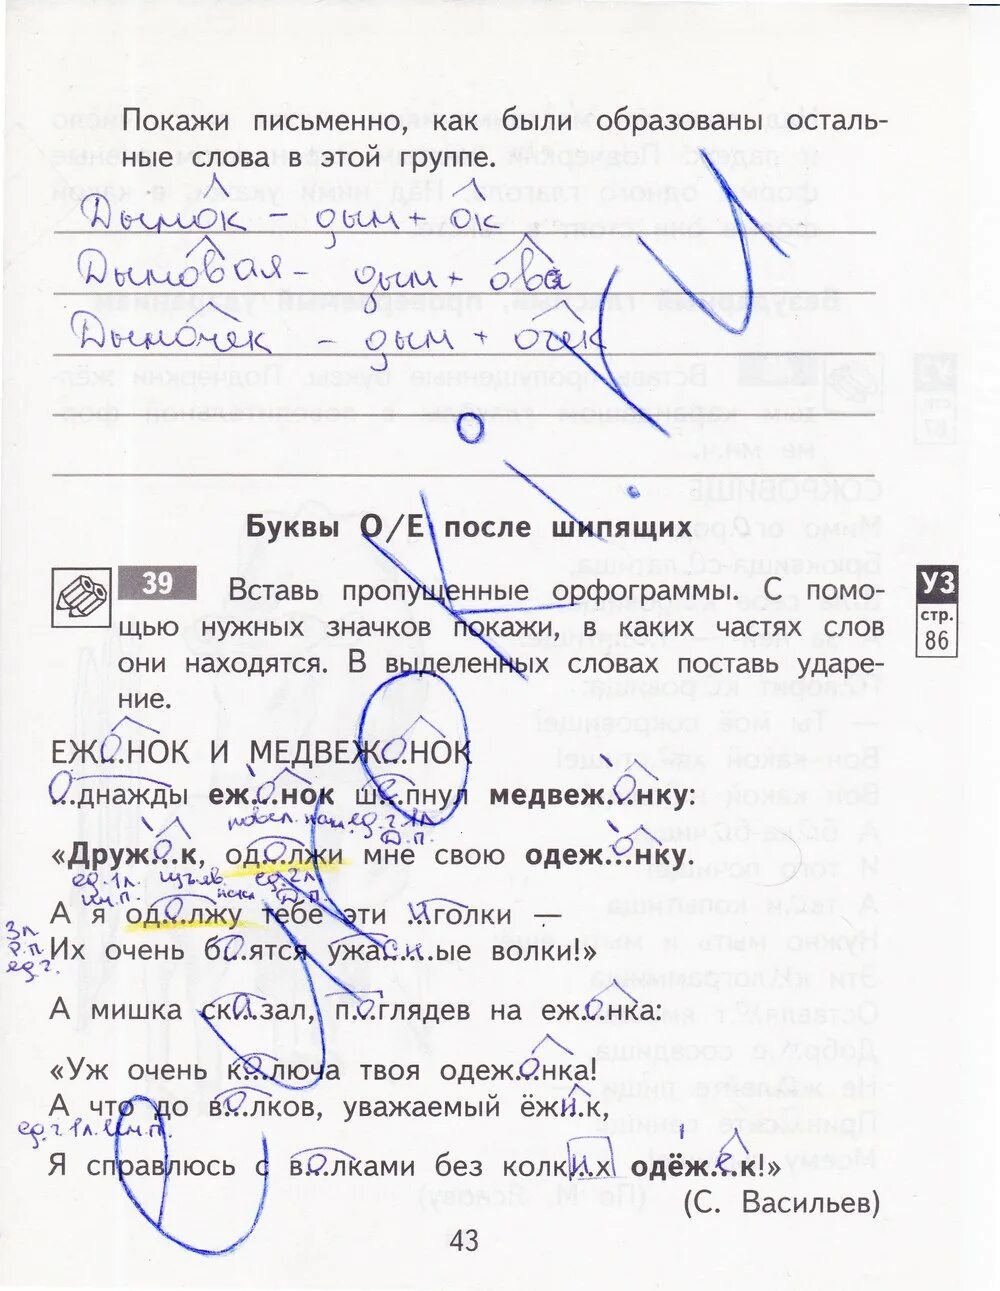 Покажи письменно, как были образованы осталь-
ные слова в этой группе.
Дымок - дым + ок
Дымовая - дым + ова
Дымочек - дым + очек
Буквы О/Е после шипящих
39 Вставь пропущенные орфограммы. С помо-
щью нужных значков покажи, в каких частях слов
они находятся. В выделенных словах поставь ударе-
ние.
УЗ
стр.
86
ЕЖ...о...НОК И МЕДВЕЖ...о...НОК
О...днажды еж...о...нок ш...е...пнул медвеж...о...нку:
повел. накл. ед.ч. 1л.
Д.п.
«Друж...о...к, од...о...лжи мне свою одеж...о...нку.
ед. 1л. изъяв. ед. 2л.
Им.п. накл. Д.п.
А я од...о...лжу тебе эти и...голки —
3л.
Р.п.
ед.ч.
Их очень б...о...ятся ужа...сн...ые волки!»
А мишка ск...а...зал, п...о...глядев на еж...о...нка:
«Уж очень к...о...люча твоя одеж...о...нка!
А что до в...о...лков, уважаемый ёж...и...к,
ед.ч. 1л. Им.п.
Я справлюсь с в...о...лками без колк...и...х одёж...е...к!»
(С. Васильев)
43